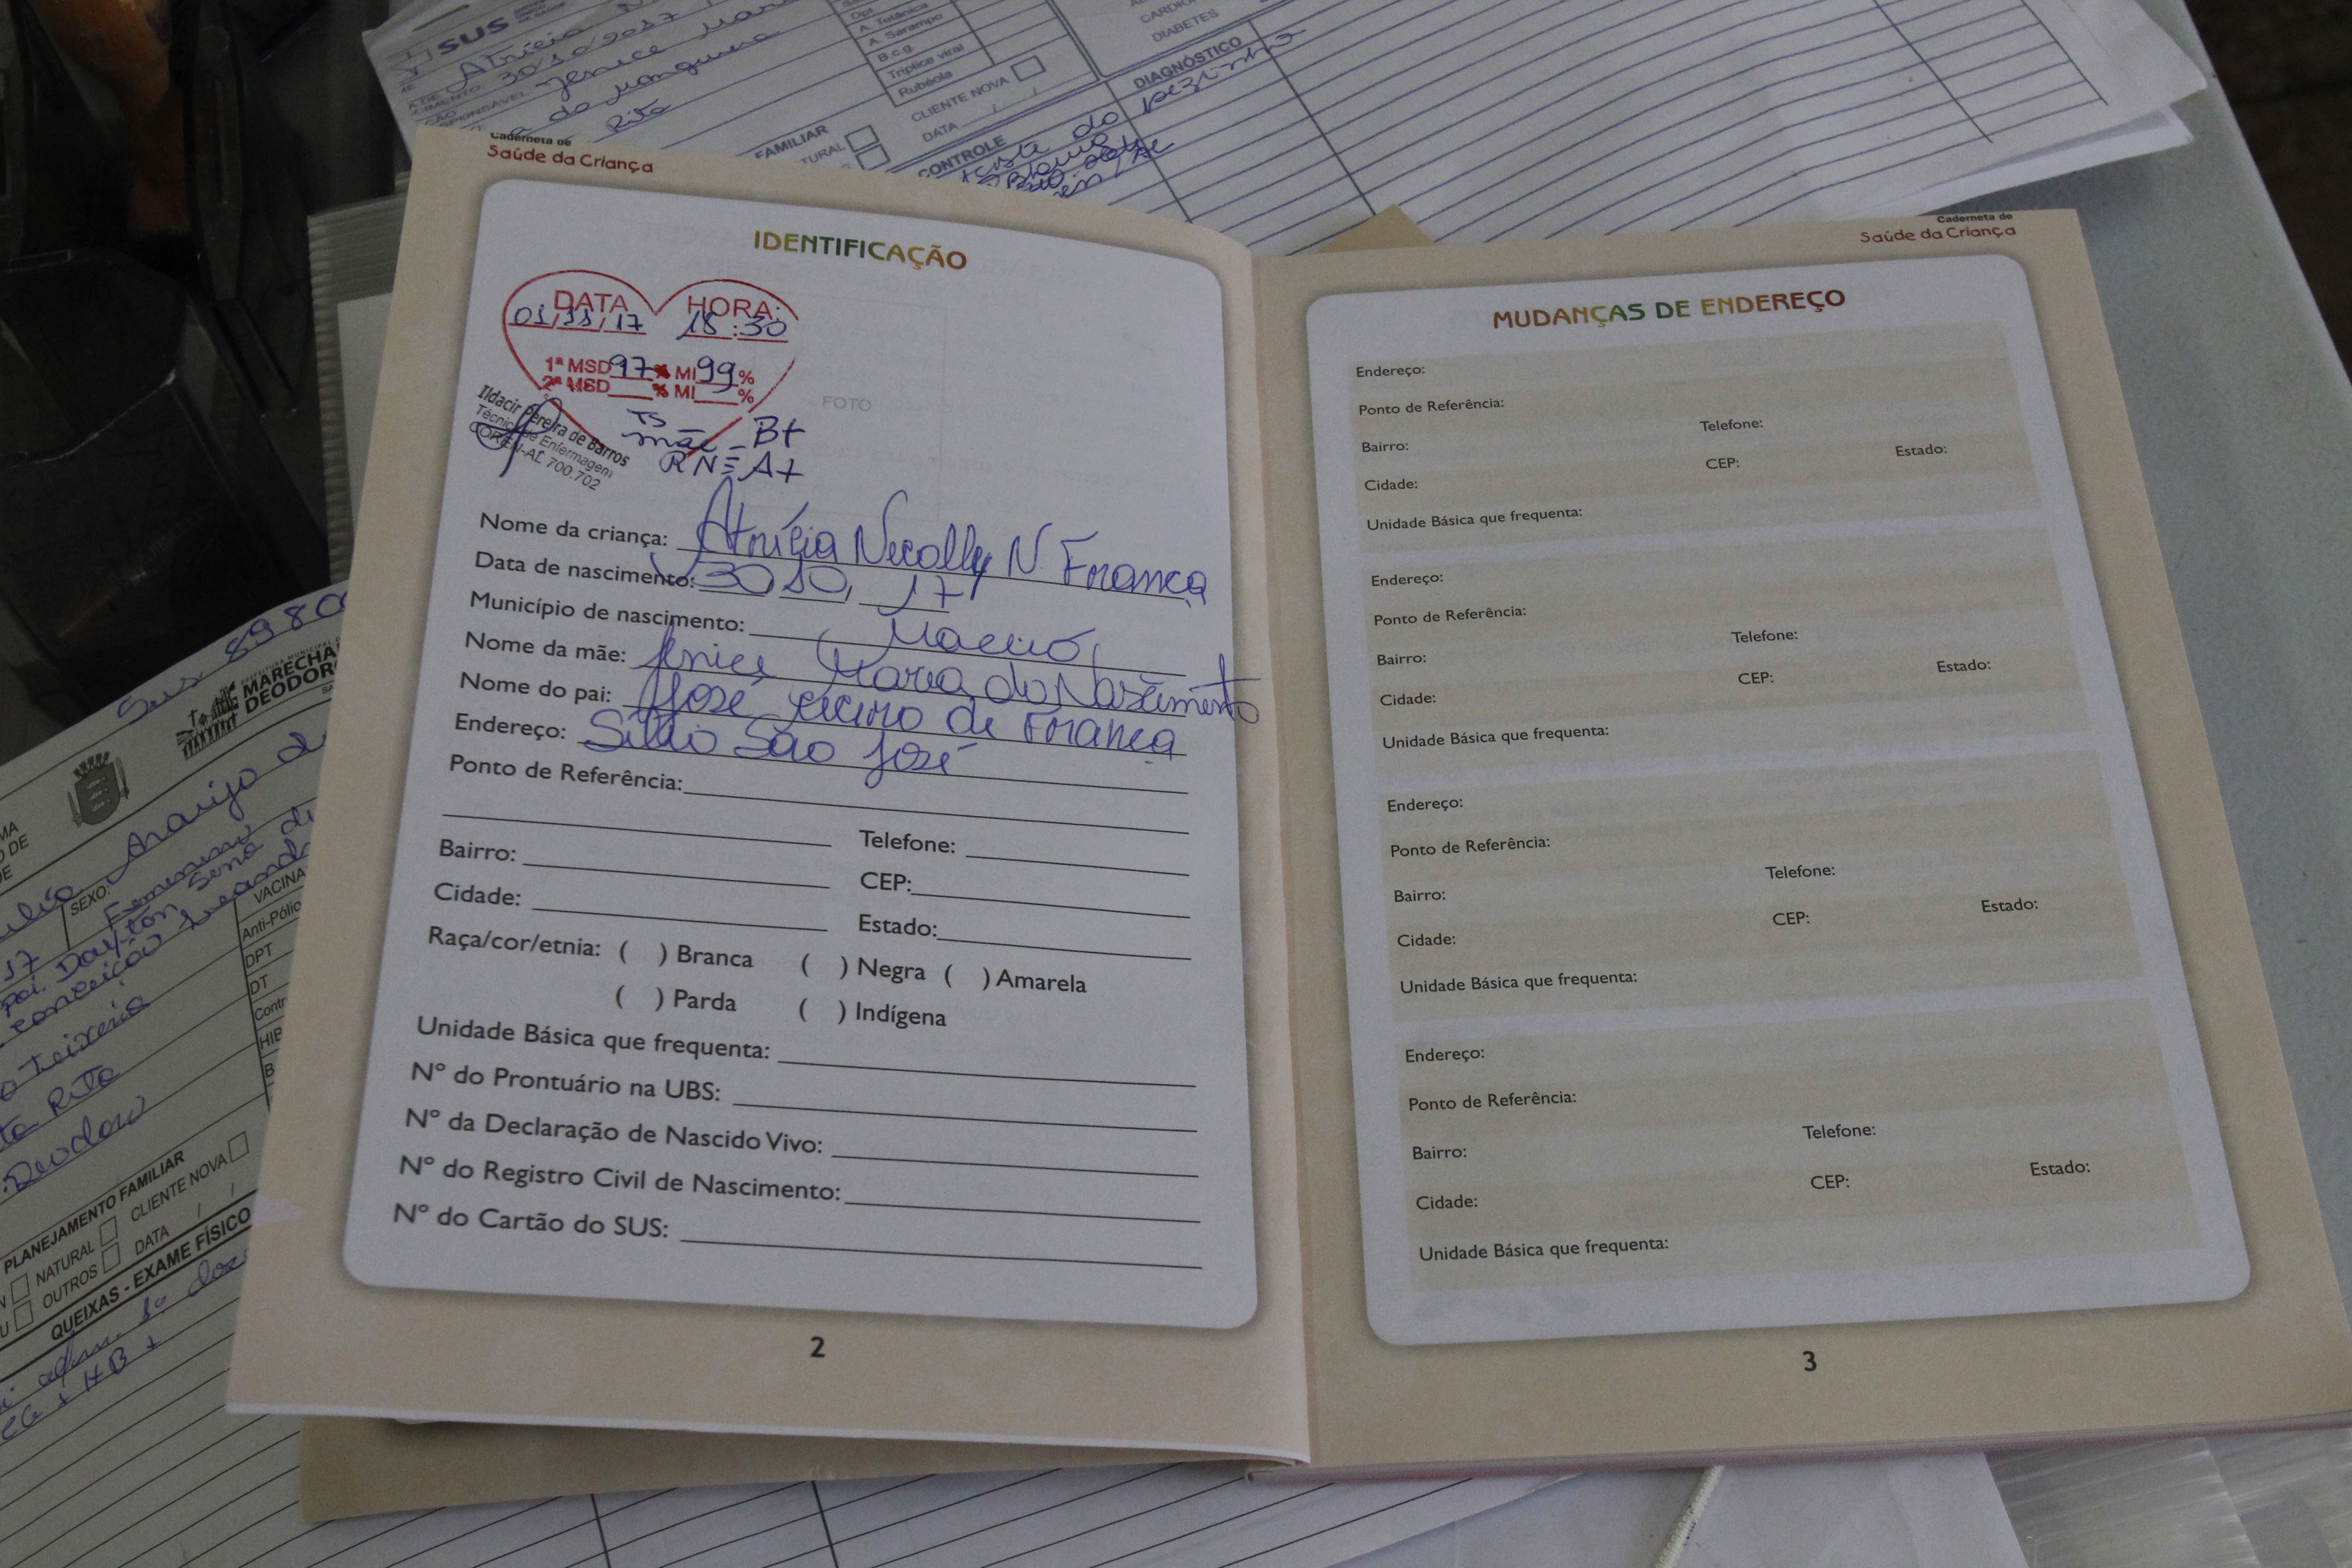 SUS
30/10/2017
Rita
Dpt
A. Tetânica
A. Sarampo
B.c.g
Triplice viral
Rubéola
CLIENTE NOVA
DATA / /
FAMILIAR
CONTROLE
DIABETES
DIAGNÓSTICO
do pezinho
Caderneta de
Saúde da Criança
IDENTIFICAÇÃO
DATA HORA:
01/11/17 18:30
1ª MSD 97 % MI 99 %
2ª MSD % MI %
Ildacir Pereira de Barros
Técnico de Enfermagem
COREN-AL 700.702
TS
mãe = B+
RN = A+
FOTO
Nome da criança: Atrícia Necolly N. França
Data de nascimento: 30/10/17
Município de nascimento: Maceió
Nome da mãe: Jenice Maria do Nascimento
Nome do pai: José Cicero de França
Endereço: Sítio São José
Ponto de Referência:
Telefone:
Bairro:
CEP:
Cidade:
Estado:
Raça/cor/etnia: ( ) Branca ( ) Negra ( ) Amarela
( ) Parda ( ) Indígena
Unidade Básica que frequenta:
Nº do Prontuário na UBS:
Nº da Declaração de Nascido Vivo:
Nº do Registro Civil de Nascimento:
Nº do Cartão do SUS:
2
Caderneta de
Saúde da Criança
MUDANÇAS DE ENDEREÇO
Endereço:
Ponto de Referência:
Bairro: Telefone:
Cidade: CEP: Estado:
Unidade Básica que frequenta:
Endereço:
Ponto de Referência:
Bairro: Telefone:
Cidade: CEP: Estado:
Unidade Básica que frequenta:
Endereço:
Ponto de Referência:
Bairro: Telefone:
Cidade: CEP: Estado:
Unidade Básica que frequenta:
Endereço:
Ponto de Referência:
Bairro: Telefone:
Cidade: CEP: Estado:
Unidade Básica que frequenta:
3
Sus 8980
MARECHA
DEODOR
Araujo
SEXO: Feminino
17
pai. Dayton Sena
Conceição
Teixeira
Rita
Deodoro
VACINA
Anti-Pólio
DPT
DT
Contr
HIB
PLANEJAMENTO FAMILIAR
NATURAL CLIENTE NOVA
OUTROS DATA / /
QUEIXAS - EXAME FÍSICO
HB +